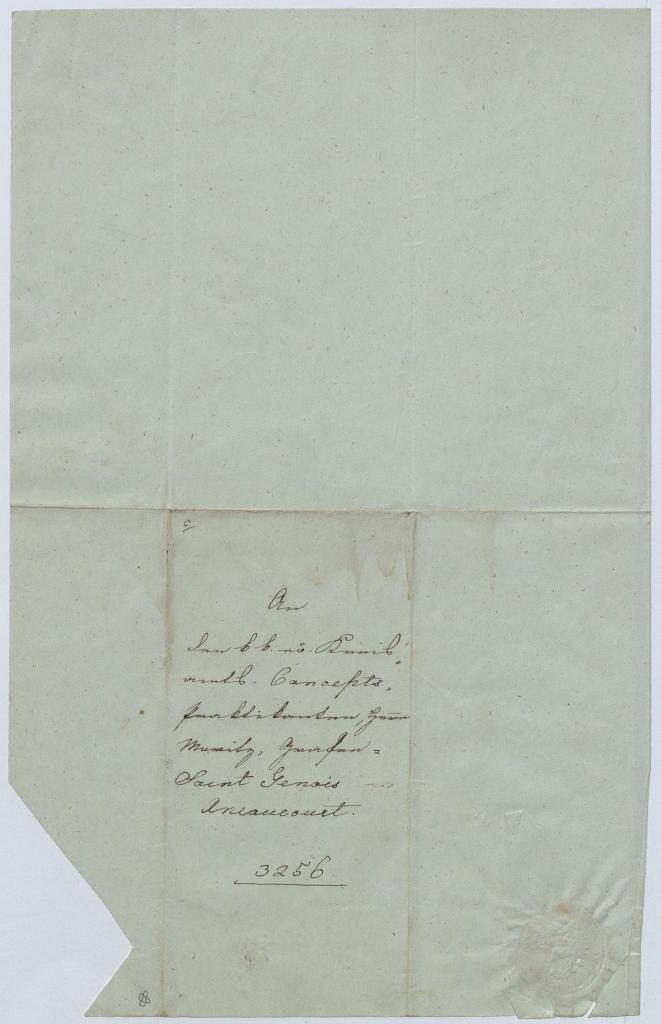 c/
An
den k. k. nö. Kreis-
amts- Concepts-
praktikanten, Herrn
Moritz, Grafen =
Saint Genois
Aneaucourt.
3256
88